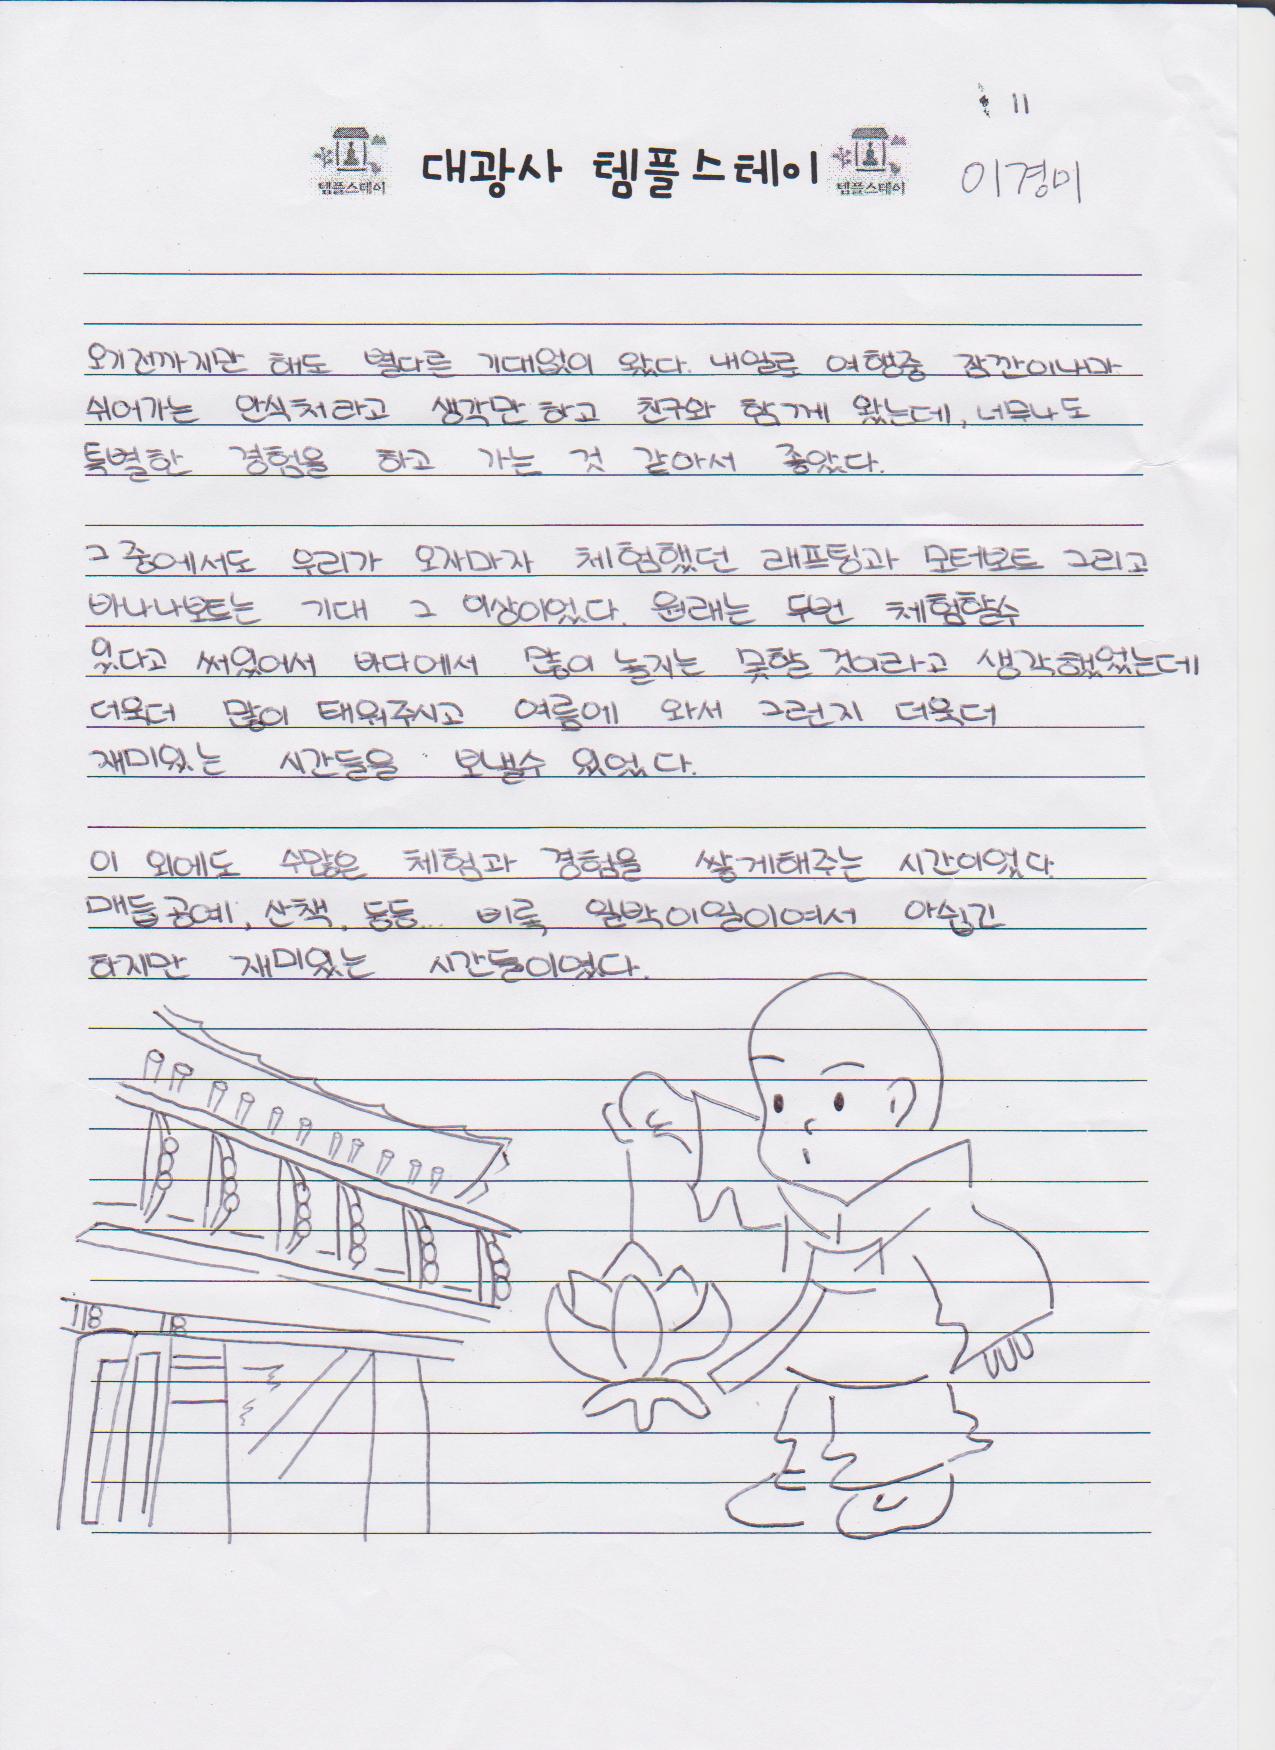 11
대광사 템플스테이
템플스테이
템플스테이
이경미
오기전까지만 해도 별다른 기대없이 왔다. 내일로 여행중 잠깐이나마
쉬어가는 안식처라고 생각만 하고 친구와 함께 왔는데, 너무나도
특별한 경험을 하고 가는 것 같아서 좋았다.
그 중에서도 우리가 오자마자 체험했던 래프팅과 모터보트 그리고
바나나보트는 기대 그 이상이었다. 원래는 두번 체험할수
있다고 써있어서 바다에서 많이 놀지는 못할 것이라고 생각했었는데
더욱더 많이 태워주시고 여름에 와서 그런지 더욱더
재미있는 시간들을 보낼수 있었다.
이 외에도 수많은 체험과 경험을 쌓게해주는 시간이었다.
매듭공예, 산책, 등등... 비록 일박이일이여서 아쉽긴
하지만 재미있는 시간들이였다.